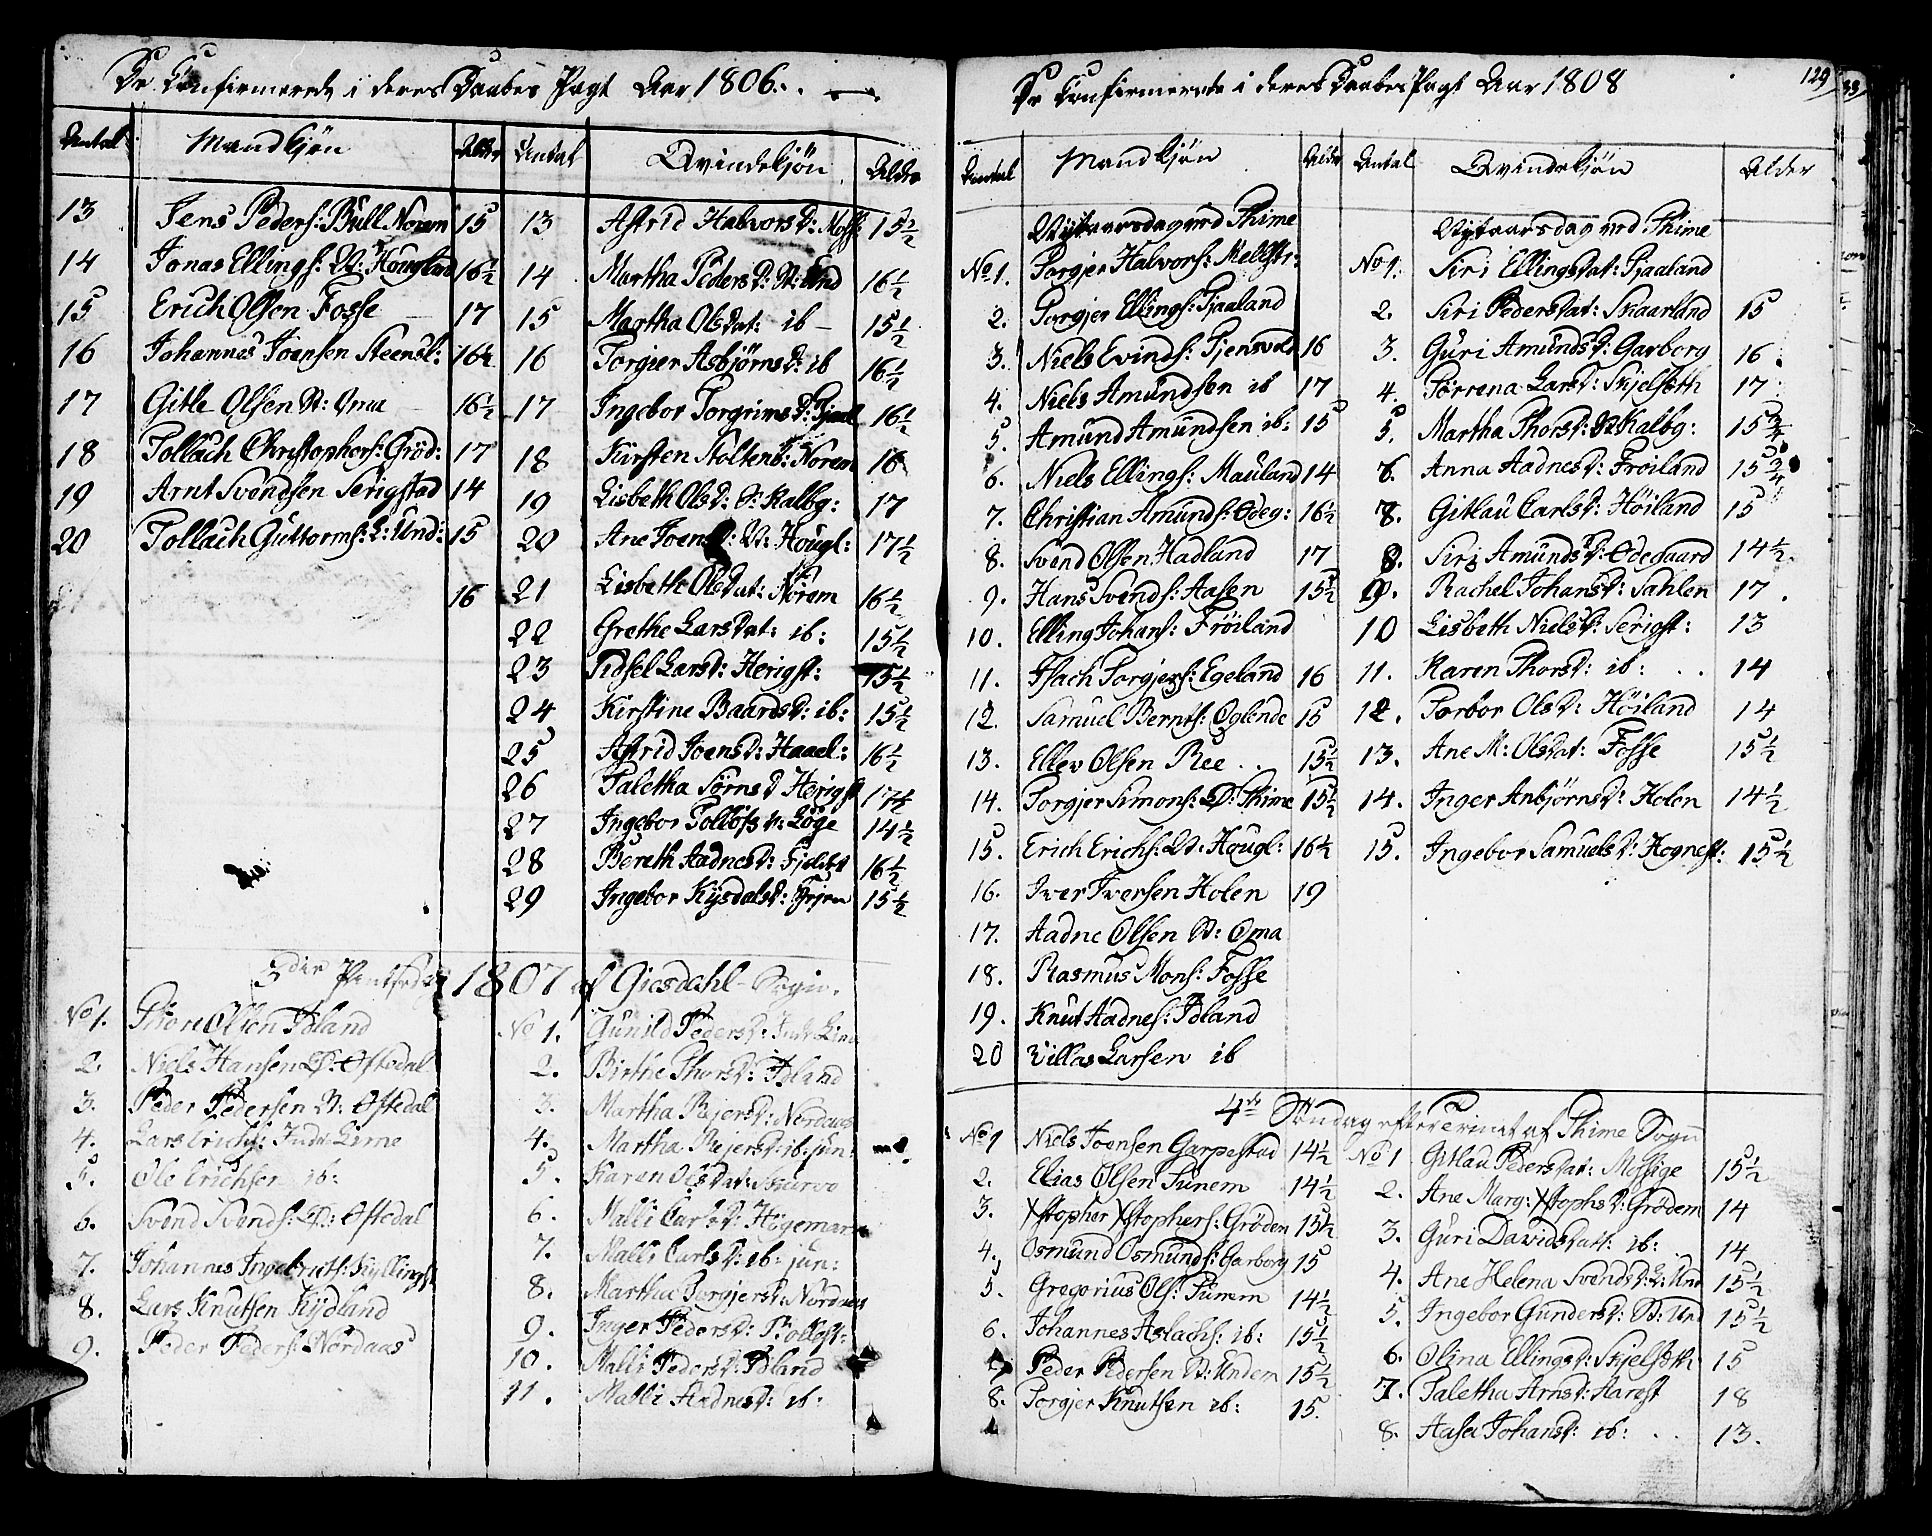 De Confirmerede i deres Daabes Pagt Aar 1806.
Antal Mandkjön Alder Antal Qvindekjön Alder
13 Jens Peders: Bull Norem 15 13 Astrid Halvorsd: Moss: 15 1/2
14 Jonas Ellings: V: Houglad 16 1/2 14 Martha Pedersd: N: Und 16 1/2
15 Erich Olsen Fosse 17 15 Martha Olsdat: ib 15 1/2
16 Johannes Joensen Steensl: 16 1/2 16 Torgier Asbjørnsd: ib 16 1/2
17 Gitle Olsen N: Oma 16 1/2 17 Ingebor Torgrimsd: Tjaal 16 1/2
18 Tollach Christophers: Gröd: 17 18 Kirsten Noltenb: Norem 16
19 Arnt Svendsen Serigstad 14 19 Lisbeth Olsd: Ø: Kalbg: 17
20 Tollach Guttorms: L: Und: 15 20 Ane Joensd: V: Hougl: 17 1/2
16 21 Lisbeth Olsdat: Norem 16 1/2
22 Grethe Larsdat: ib: 15 1/2
23 Sidsel Larsd: Herigst: 15 1/2
24 Kirstine Baardsd: ib: 15 1/2
25 Astrid Joensd: Haael: 16 1/2
26 Taletha Sørnsd Herigst 17 1/2
27 Ingebor Tollofsd: Löge 14 1/2
28 Bereth Aadnesd: 16 1/2
29 Ingebor 15 1/2
1807 af Giesdahl Sogn.
No 1. Thore Olsen Idland No 1. Gunild Pedersd: Indr Lima
2. Niels Hansen Ø: Oftedal 2. Birthe Thorsd: Idland
3. Peder Pedersen N: Oftedal 3. Martha Rejersd: Nordaas
4. Lars Erichs: Indr Lime 4. Martha Rejersd: ib: jun:
5. Ole Erichsen ib: 5. Karen Olsdat:
6. Svend Svends: Ø: Oftedal 6. Malli Carlsd: Högemark
7. Johannes Ingebruts: Kyllingst 7. Malli Carlsd: ib: jun:
8. Lars Knutsen Kydland 8. Martha Torgjersd: Nordaas
9. Peder Peders: Nordaas 9. Inger Pedersd:
10. Malli Pedersd: Idland
11. Malli Aadnesd: ib:
De Confirmerede i deres Daabes Pagt Aar 1808
129
Antal Mandkjön Alder Antal Qvindekjön Alder
Nytaarsdag ved Thime Nytaarsdag ved Thime
No 1. Torgjer Halvors: Mellstr: No 1. Siri Ellingsdat: Tjaaland
2. Torgjer Ellings: Tjaaland 2. Siri Pedersdat: Skaarland 15
3. Niels Evinds: Tjensvold 16 3. Guri Amundsd: Garborg 16
4. Niels Amundsen ib 17 4. Torrena Larsd: Skjelsøth 17
5. Amund Amundsen ib: 15 5. Martha Thorsd: V: Kalbg: 15 3/4
6. Niels Ellings: Mauland 14 6. Anna Aadnesd: Froiland 15 3/4
7. Christian Amunds: Ødeg: 16 1/2 7. Gitlau Carlsd: Höiland 15
8. Svend Olsen Hadland 17 8. Siri Amundsd: Ødegaard 14 1/2
9. Hans Svends: Aasen 15 1/2 9. Rachel Johansd: Sahlen 17
10. Elling Johans: Fröiland 10 Lisbeth Nielsd: Serigst: 13
11. Isach Torgjers: Egeland 16 11. Karen Thorsd: ib: 14
12. Samuel Bernts: Oglende 15 12. Torbor Olsd: Höiland 14
13. Ellev Olsen Ree 15 1/2 13. Ane M: Olsdat: Fosse 15 1/2
14. Torgjer Simons: Ø: Thime 15 1/2 14. Inger Anbjørnsd: Holen 14 1/2
15. Erich Erichs: V: Hougl: 16 1/2 15. Ingebor Samuelsd: Hognest: 15 1/2
16. Iver Iversen Holen 19
17. Aadne Olsen N: Oma
18. Rasmus Mons: Fosse
19. Knut Aadnes: Idland
20 Villas Larsen ib
4de Söndag efter Trinit af Thime Sogn
No 1 Niels Joensen Garpestad 14 1/2 No 1 Gitlau Pedersdat: Mossige 15 1/2
2. Elias Olsen Tunem 14 1/2 2. Ane Marg: Xstophsd: Grödem 14
3. Xstopher Xstophers: Gröden 15 1/2 3. Guri Davidsdatt: ib: 14
4. Osmund Osmunds: Garborg 15 4. Ane Helena Svendsd: L: Und 15 1/2
5. Gregorius Ols: Tunem 14 1/2 5. Ingebor Gundersd: N: Und 15 1/2
6. Johannes Aslachs: ib: 15 1/2 6. Olina Ellingsd: Skjelsøth 15
7 Peder Pedersen N: Undem 15 1/2 7. Taletha Arnsd: Harest 18
8. Torgjer Knutsen ib: 15. 8. Aasa Johansd: ib: 13.